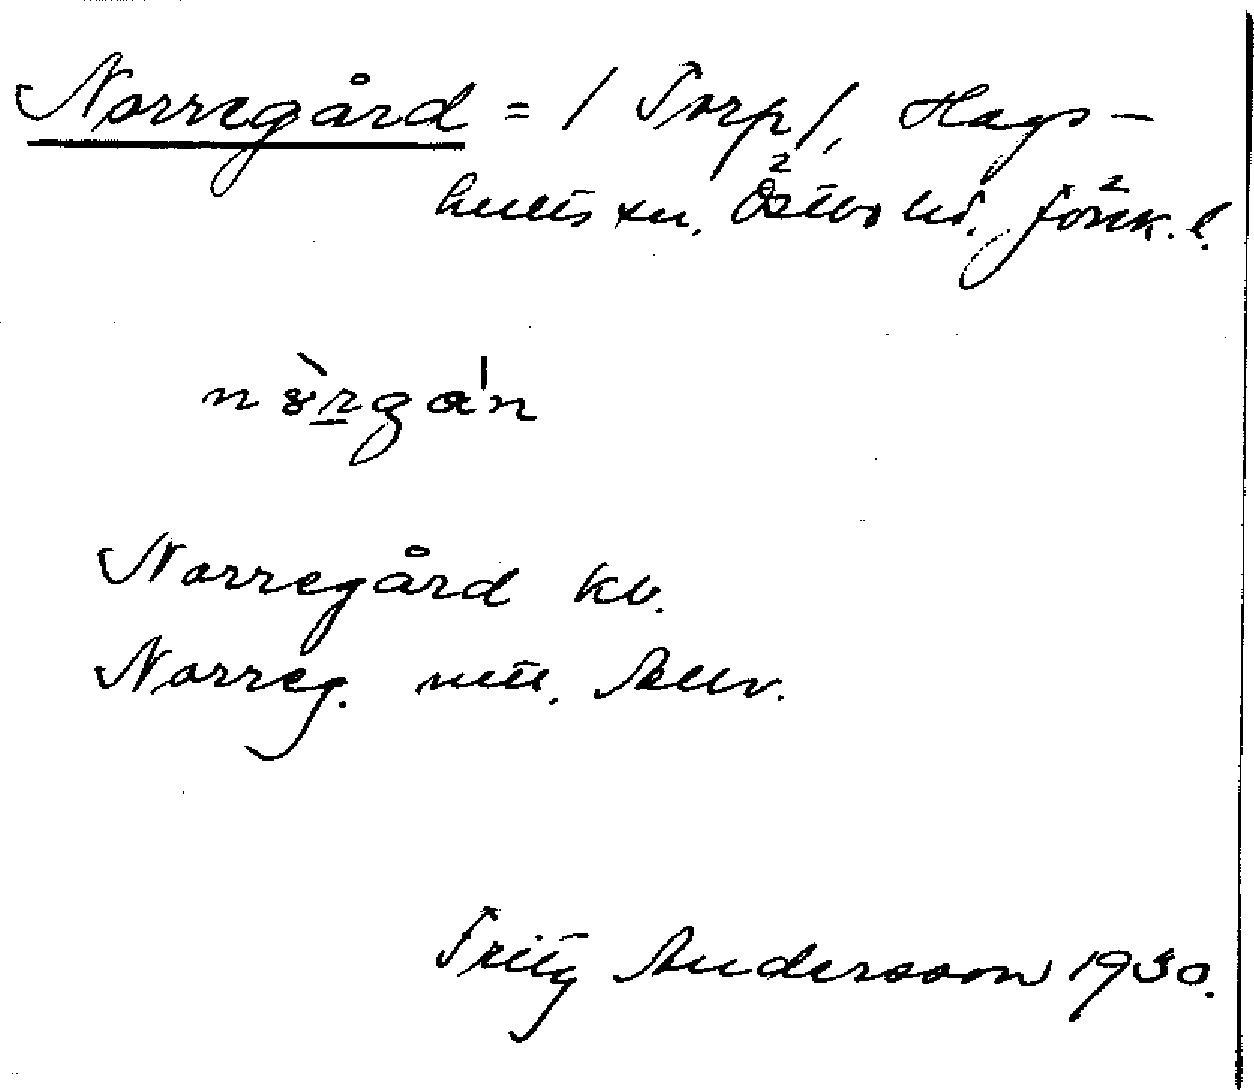 Norregård = / Torp /, Hags-
hults sn. Östbo hd. Jönk. l.
Norregård kv.
Norreg.
Fritz Andersson 1930.